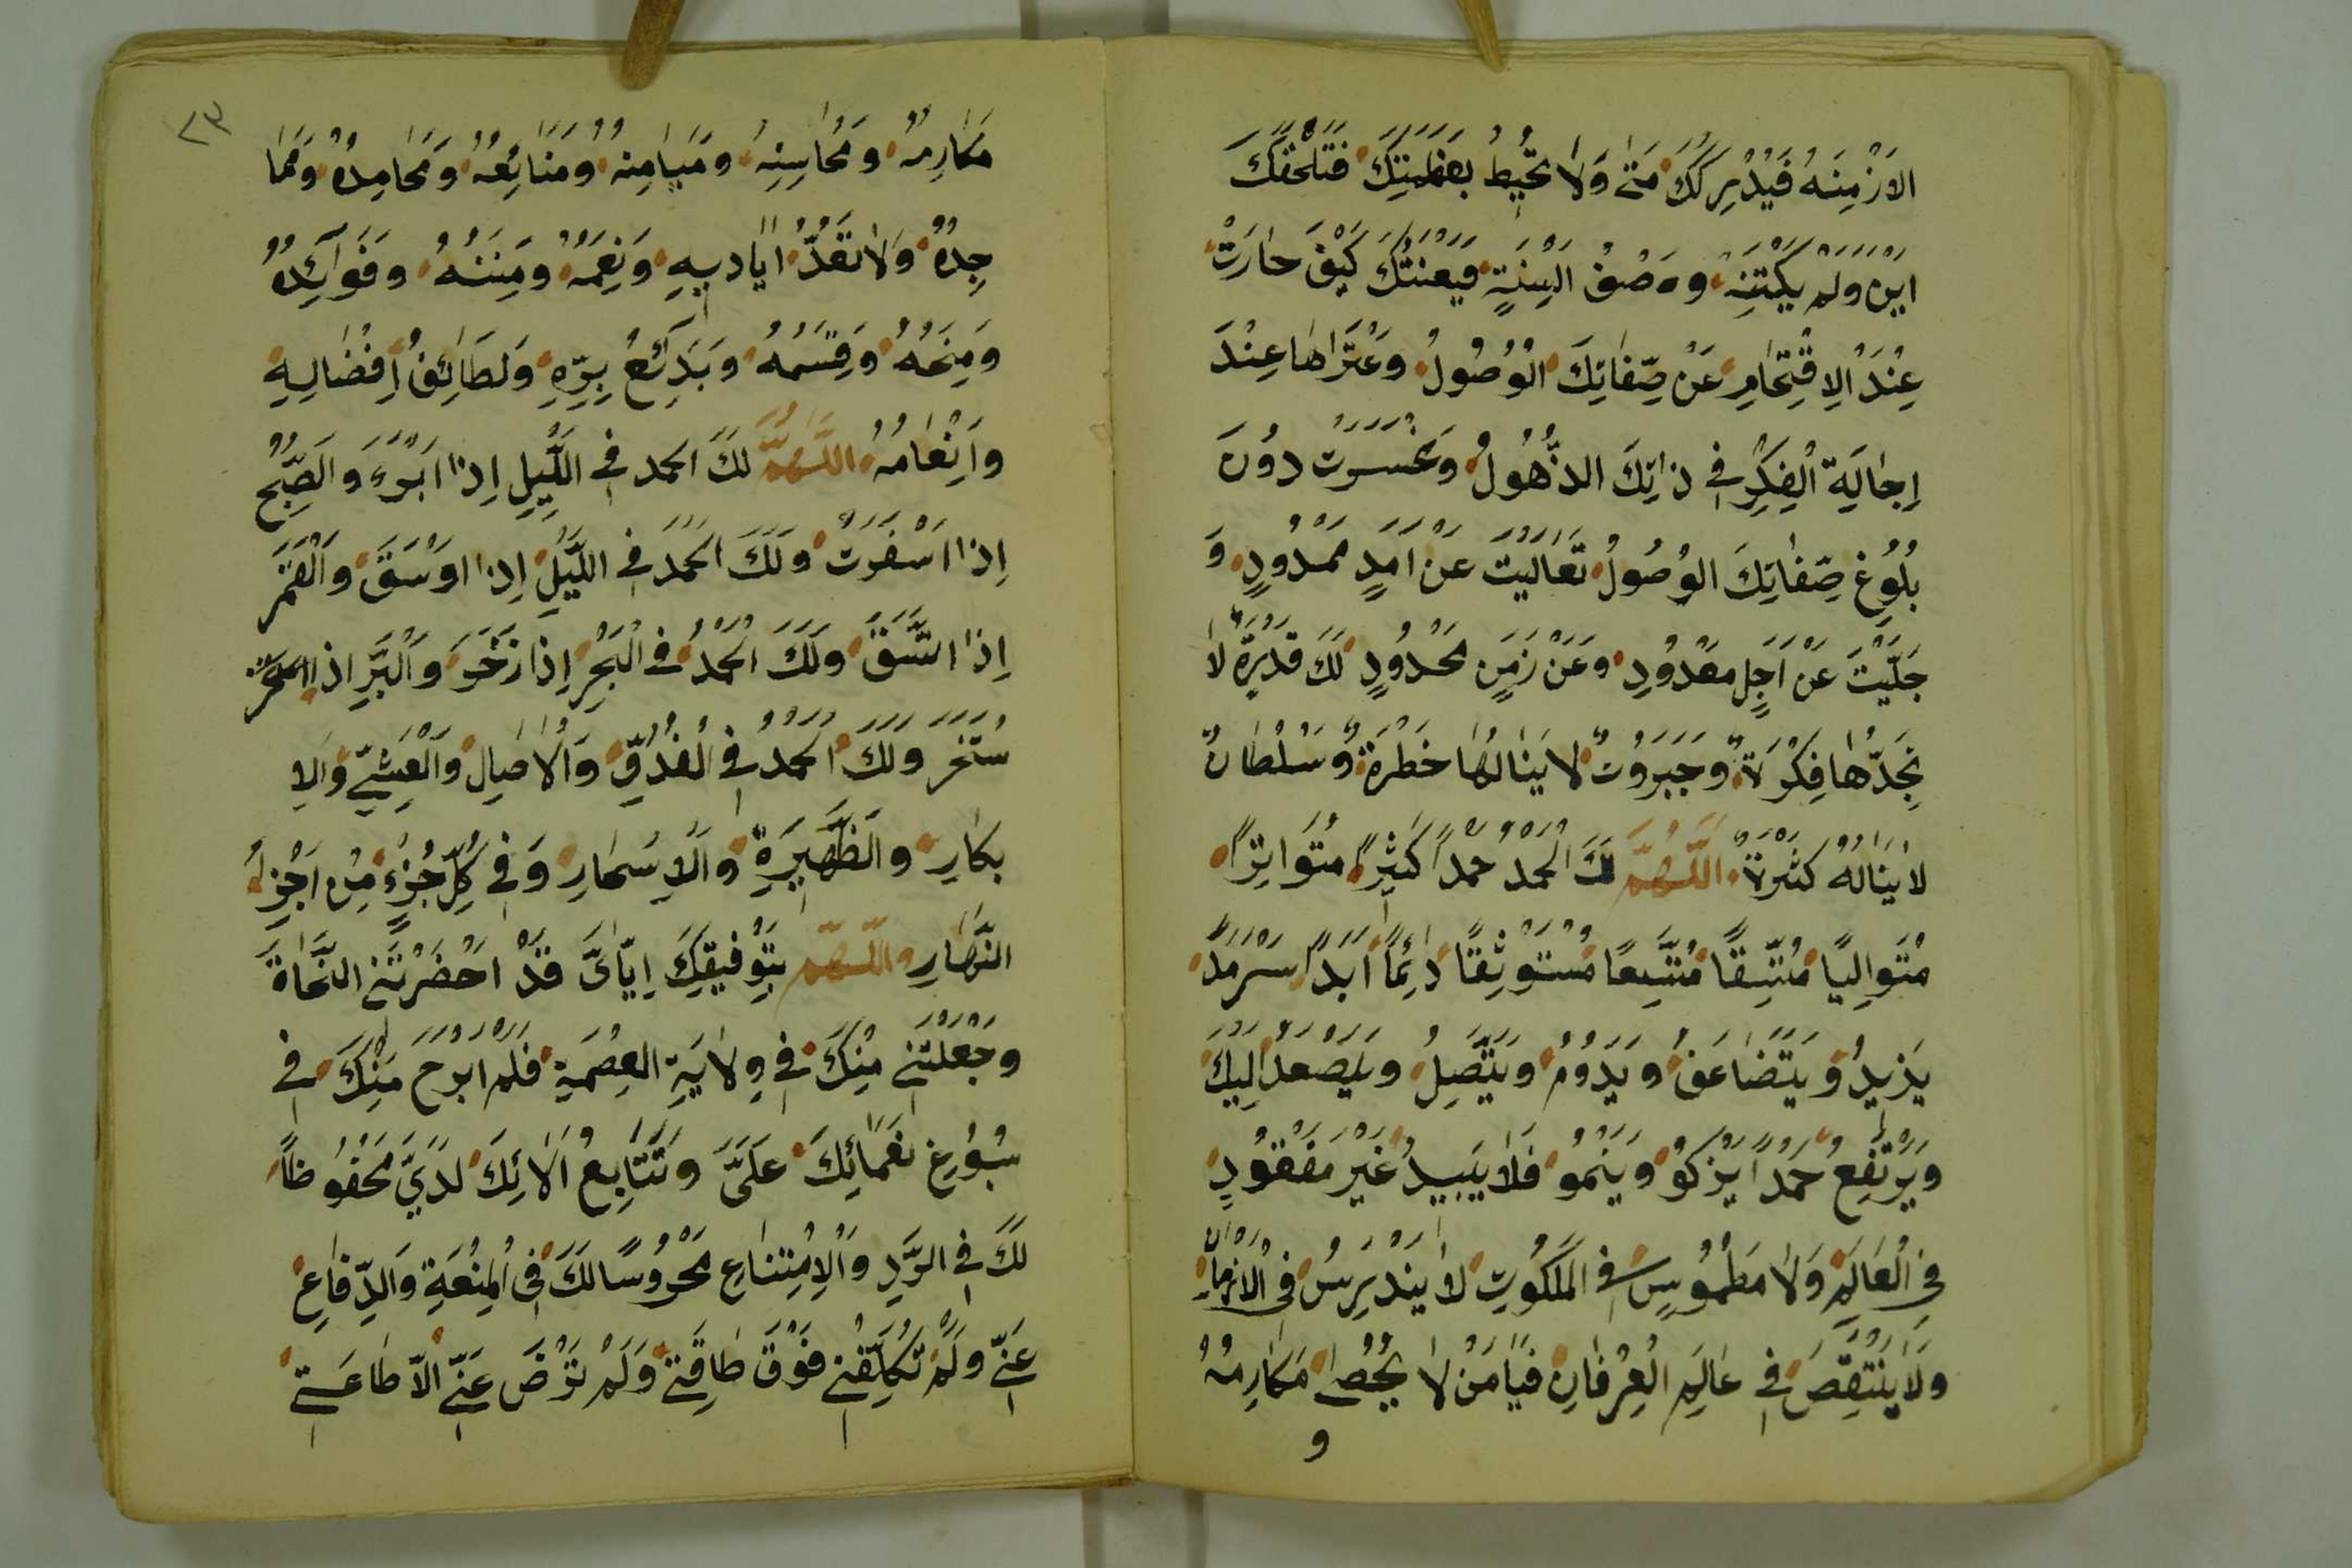 الاَزْمِنَهُ فَيُدْرِكَكَ مَتىٰ وَلاٰ تحُيِطُ بِعَظَمَتِكَ فَتَلْحَقَكَ
اَيْنَ وَلَمْ يَكْتَنِهْ وَصْفُ اَلْسِنَةٍ فَيَعْنَتُكَ كَيْفَ حٰارَتْ
عِنْدَ الاِقْتِحٰامِ عَنْ صِفٰاتِكَ الْوُصُولُ وَعَتَرٰاهٰا عِنْدَ
اِجٰالَةِ الْفِكْرِ فِي ذٰاتِكَ الذُّهُولُ وَخَسَرَتْ دُونَ
بُلُوغِ صِفٰاتِكَ الوُصُولُ تَعٰالَيْتَ عَنْ اَمَدٍ مَمْدُودٍ وَ
جَلَّيْتَ عَنْ اَجَلٍ مَعْدُودٍ وَعَنْ زَمَنٍ مَحْدُودٍ لَكَ قُدْرَةٌ لاٰ
تَجِدُّهٰا فِكْرَةٌ وَجَبَرُوتٌ لا يَنٰالُهٰا خَطْرَةٌ وَسُلْطٰانٌ
لاٰ يَنٰالُهُ كَثْرَةٌ اَللّٰهُمَّ لَكَ الْحَمْدُ حَمْداً كَثِيْراً مُتَوٰاتِراً
مُتَوٰالِيًا مُتَّسِقًا مُتَّسِعًا مُسْتَوْثِقًا دٰائِمًا اَبَدًا سَرْمَدًا
يَزيدُ وَيَتَضٰاعَفُ وَيَدُومُ وَيَتَّصِلُ وَيَصْعَدُ اِلَيْكَ
وَيَرْتَفِعُ حَمْداً يَزْكُو وَيَنْمُو فَلاٰ يَبيدُ غَيْرَ مَفْقُودٍ
فِي الْعٰالَمِ وَلاٰ مَطْمُوسٍ فِي الْمَلَكُوتِ لاٰ يَنْدَرِسُ فِي الْاَزْمٰانِ
وَلاٰ يَنْتَقِصُ فِي عٰالَمِ الْعِرْفٰانِ فَيٰا مَنْ لاٰ يُحْصٰى مَكٰارِمُهُ
و
٢٣
مَكٰارِمُهُ وَمَحٰاسِنِهُ وَمَيٰامِنهُ وَمَنٰائِعُهُ وَمَحٰامِدُهُ وَمَمٰا
جِدُهُ وَلاٰ تُعَدُّ اَيٰاديهِ وَنِعَمُهُ وَمِنَنُهُ وَفَوٰائِدُهُ
وَمِنَحُهُ وَقِسَمُهُ وَبَدٰائِعُ بِرِّهِ وَلَطٰائِفُ اِفْضٰالِهِ
وَاِنْعٰامُهُ اَللّٰهُمَّ لَكَ الحمد فِي اللَّيْلِ اِذٰا اَبْرَءَ وَالصُّبْحِ
اِذٰا اَسْفَرَتْ وَلَكَ الْحَمْدُ فِي اللَّيْلِ اِذٰا اوَسَقَ وَالْقَمَرِ
اِذٰا اتَّسَقَ وَلَكَ الْحَمْدُ فِي الْبَحْرِ اِذٰا زَخَرَ وَالْبَرِّ اِذٰا
وَلَكَ الْحَمْدُ فِي الْغُدُوِّ وَالْاٰصٰالِ وَالْعَشِيِّ وَالاِ
بْكٰارِ وَالظَّهِيرَةِ وَالاَسْحٰارِ وَفِي كُلِّ جُزْءٍ مِنْ اَجْزٰاءِ
النَّهٰارِ اَللّٰهُمَّ بِتَوْفيقِكَ اِيّٰايَ قَدْ اَحْضَرْتَنِي النَّجٰاةَ
وَجَعَلْتَنِي مِنْكَ فِي وِلاٰيَةِ العِصْمَةِ فَلَمْ اَبْرَحْ مِنْكَ فِي
سُبُوغِ نَعْمٰائِكَ عَلَيَّ وَتَتٰابُعُ اٰلاٰئِكَ لَدَيَّ مَحْفُوظًا
لَكَ فِي الرَّدِ وَالْاِمْتِنٰاعِ مَحْرُوسًا لَكَ فِي الْمِنْعَةِ وَالدِّفٰاعِ
عَنّي وَلَمْ تُكَلِّفْنِي فَوْقَ طٰاقَتِي وَلَمْ تَرْضَ عَنّي اِلاّٰ طٰاعَتي